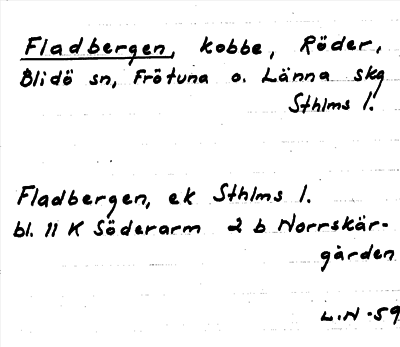 Fladbergen, kobbe, Röder,
Blidö sn, Frötuna o. Länna skg
Sthlms l.
Fladbergen, ek Sthlms l.
bl. 11 K Söderarm 2 b Norrskär-
gården
L.N -59